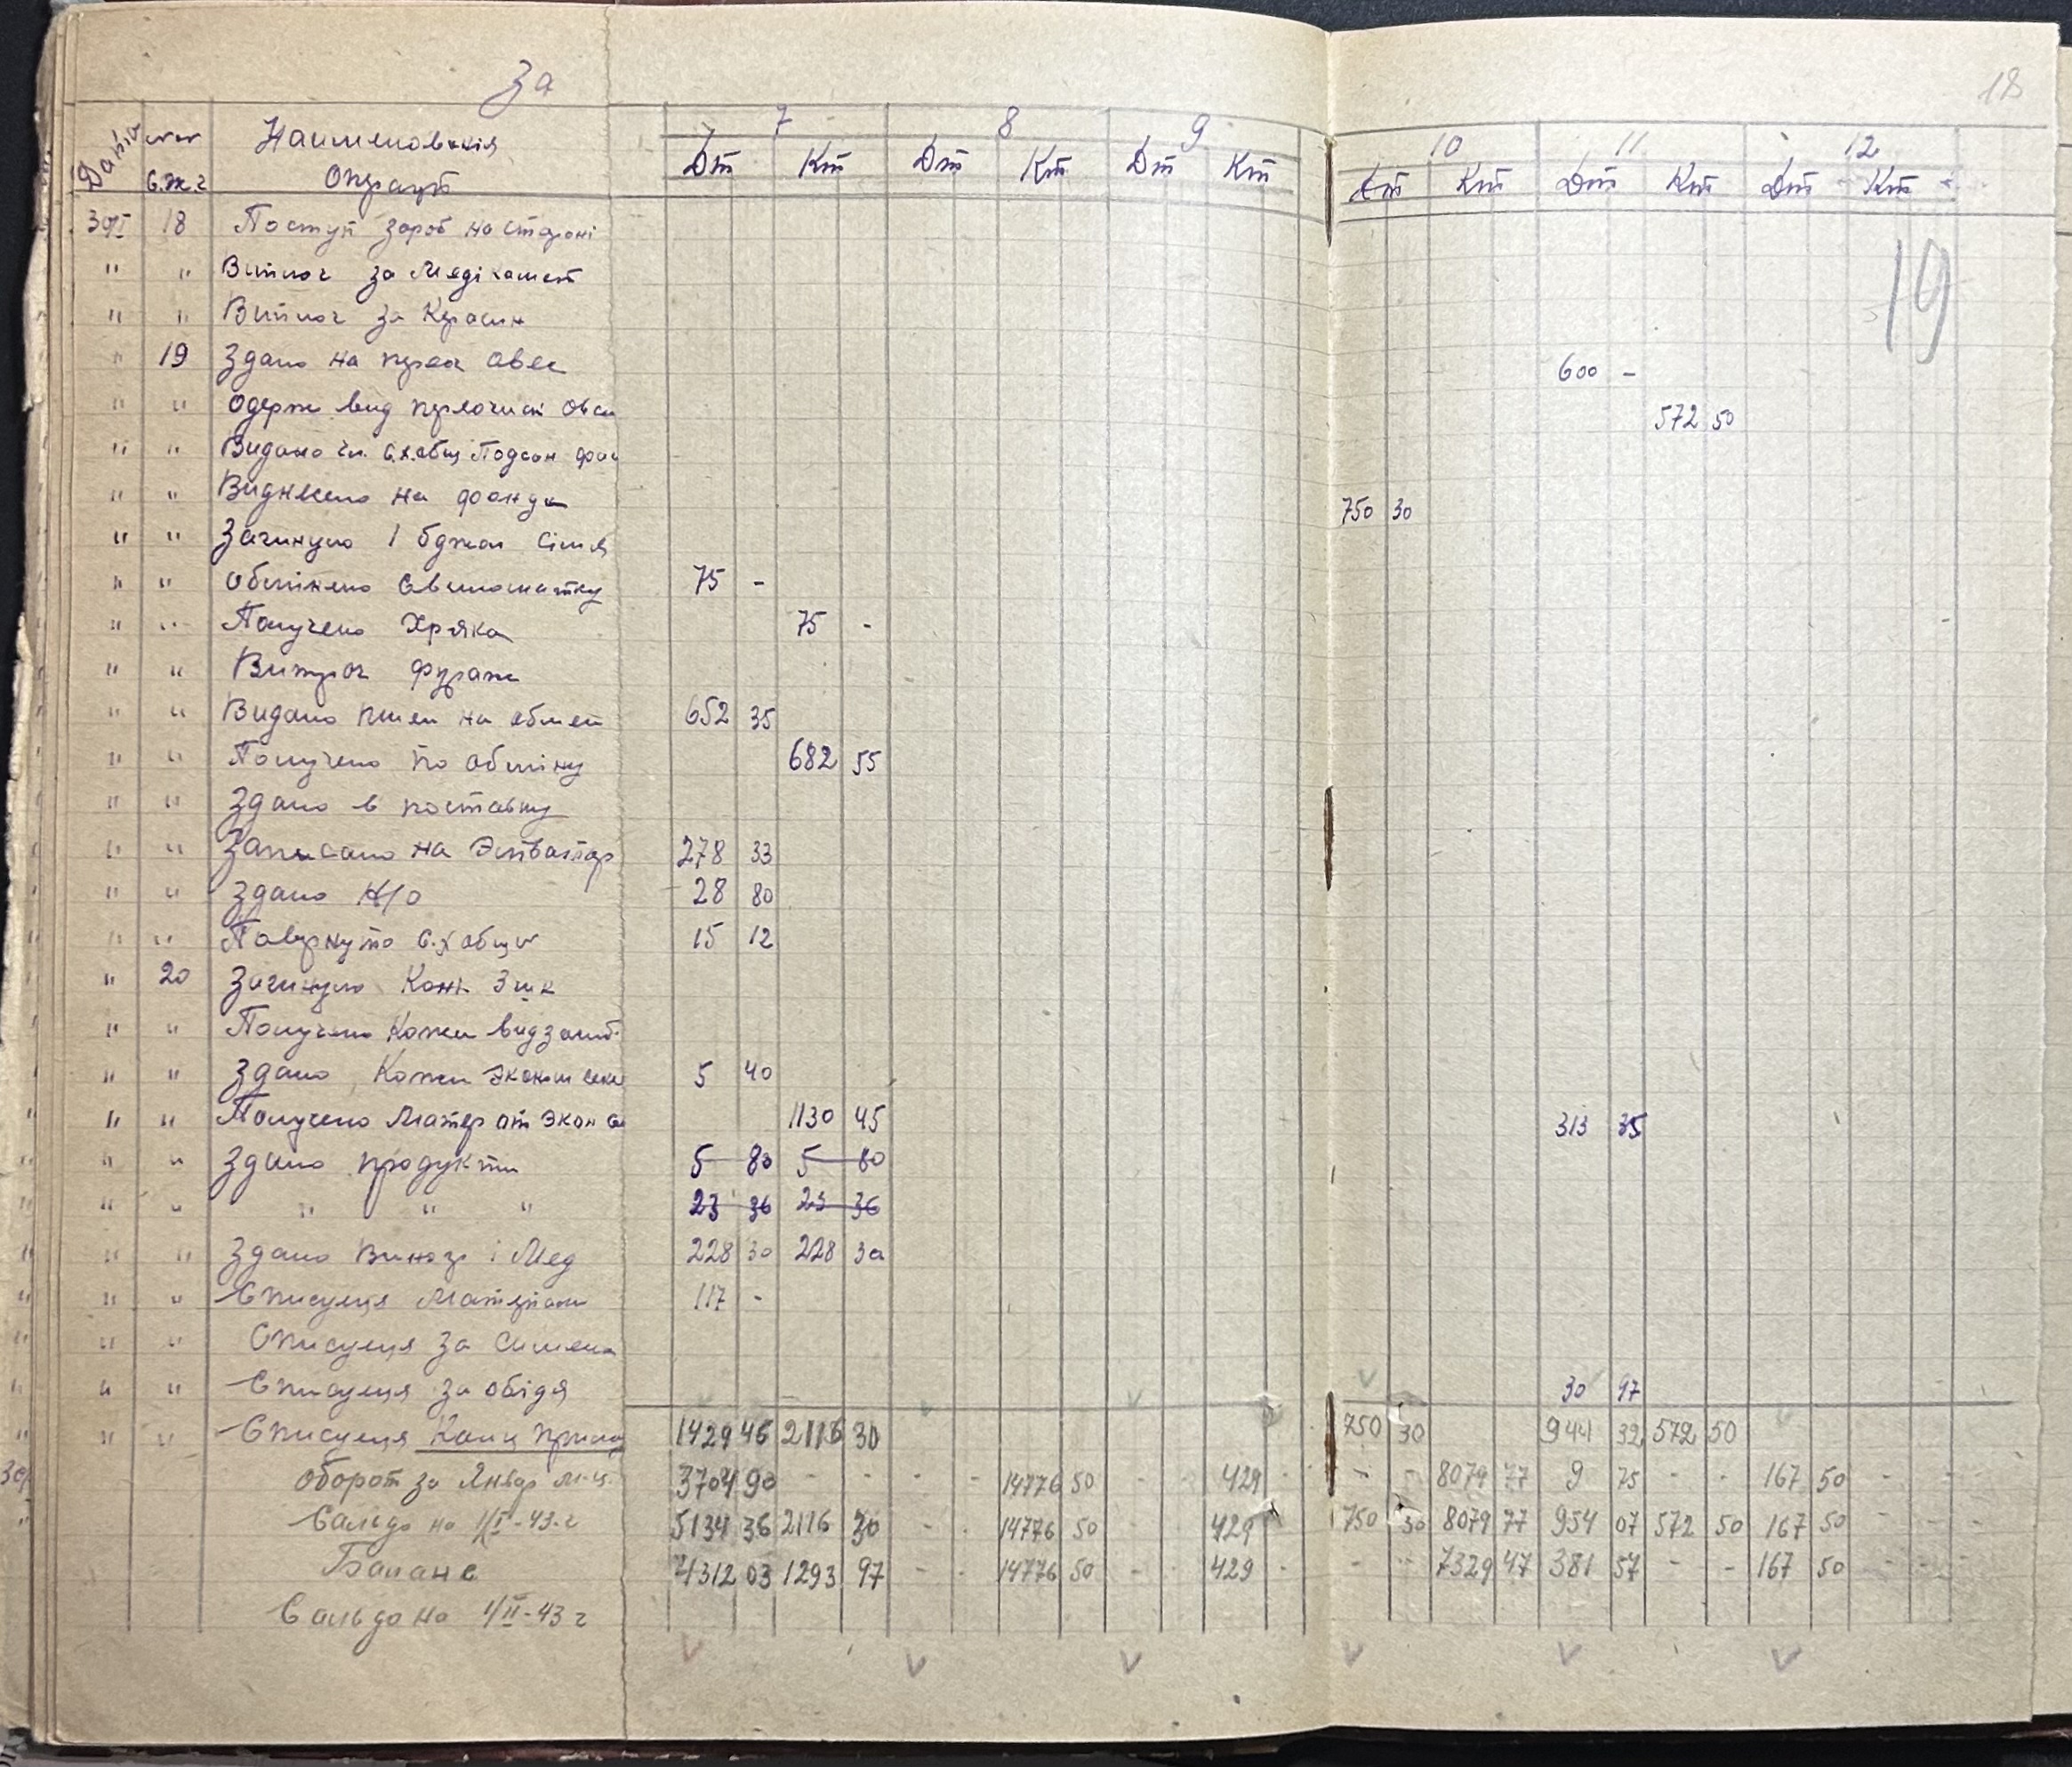 За
18
19
7 8 9 10 11 12
Дт Кт Дт Кт Дт Кт Дт Кт Дт Кт Дт Кт
Наименованія
Операцій
30/I 18 Поступ зароб на стороні
" " Виплоч за Медікамент
" " Виплоч за Керасин
" 19 Здано на переоч овес 600 -
" " Одерж вид переочист Овса 572 50
" " Видано чл. с.х.общ Подсон
" " Виднесено на фонди 750 30
" " Загинуло 1 бджол сімя
" " Обмінено Свиноматку 75 -
" " Получено Хряка 75 -
" " Витроч фураж
" " Видано пшен на обмен 652 35
" " Получено по обміну 682 55
" " Здано в поставку
" " Записано на 278 33
" " Здано Н/О 28 80
" " Повернуто с.х общи 15 12
" 20 Загинуло Кон. 3 шк
" " Получено Кожи вид
" " Здано Кожи Эконом 5 40
" " Получено Матер от Экон 1130 45 313 35
" " Здано продукти 5 80 5 80
" " " " " 23 36 23 36
" " Здано і Мед 228 30 228 30
" " Списуеця Матеріали 117 -
" " Списуеця за
" " Списуеця за обідя 30 97
" " Списуеця Канц 1429 46 2116 30 750 30 944 32 572 50
Оборот за Январ м-ц. 3704 90 - - - - - 14776 50 - - 429 - - - 8079 77 9 75 - - 167 50 - -
Сальдо на 1/I-43-г 5134 36 2116 30 - - 14776 50 - - 429 - 750 30 8079 77 954 07 572 50 167 50 - -
Баланс 4312 03 1293 97 - - 14776 50 - - 429 - - - 7329 47 381 57 - - 167 50 - -
Сальдо на 1/II-43 г